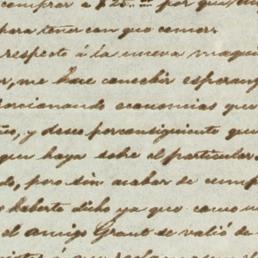 comprar a $20.
para tener con que comer
respecto á la nueva maqui
r, me hace consebir esperan
orcionando economias que
o, y deseo porconsiguiente que
que haya sobre el particular
do, pero sin acabar de
haberte dicho ya que como
el amigo Grant se valió de